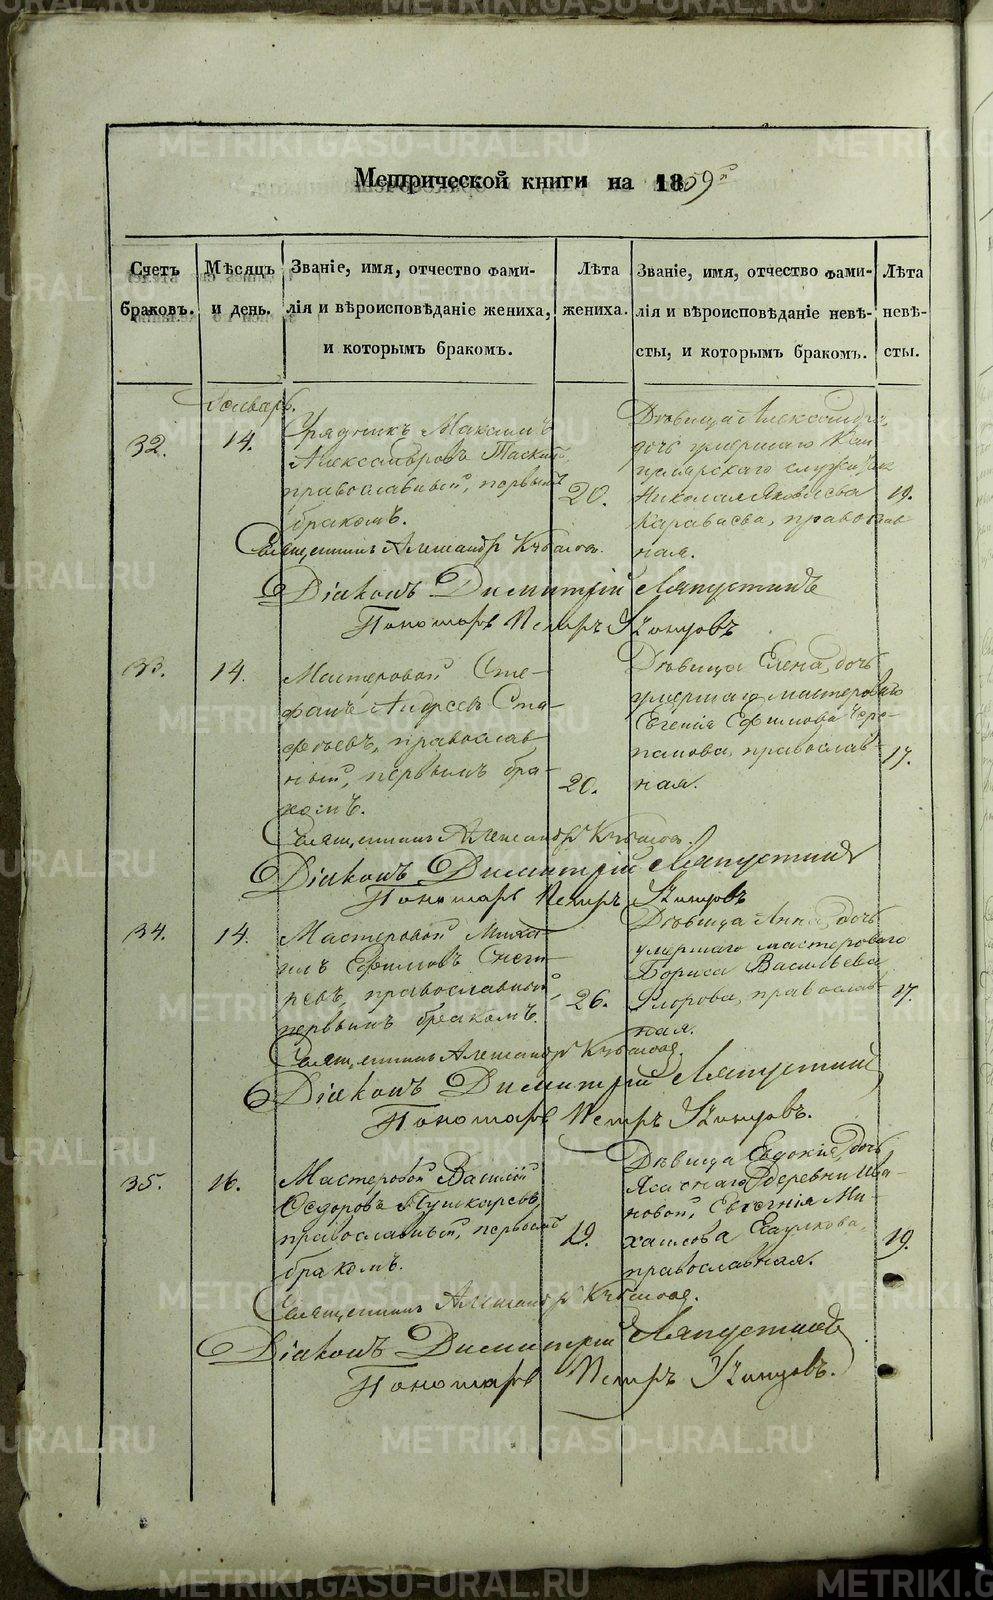 Метрической книги на 1859й
Счетъ браковъ.
Мѣсяцъ и день.
Званіе, имя, отчество фами-
лія и вѣроисповѣданіе жениха,
и которымъ бракомъ.
Лѣта жениха.
Званіе, имя, отчество фами-
лія и вѣроисповѣданіе невѣ-
сты, и которымъ бракомъ.
Лѣта невѣ-
сты.
Январь.
32.
14.
Урядникъ Максимъ
Александровъ
православный, первымъ
бракомъ.
20.
Дѣвица Александра,
дочь умершаго Кан
целярскаго
Николая Яковлева
Караваева, православ
ная.
19.
Священникъ Александръ
Діаконъ Димитрій Ляпустинъ
Пономарь Петръ
33.
14.
Мастеровой Сте-
фанъ Андреевъ Ста-
православ
ный, первымъ бра-
комъ.
20.
Дѣвица Елена, дочь
умершаго мастероваго
Евгенія Ефимова Чере-
панова, православ-
ная.
17.
Священникъ Александръ
Діаконъ Димитрій Ляпустинъ
Пономарь Петръ
34.
14.
Мастеровой Миха-
илъ Ефимовъ Снеги-
ревъ, православный
первымъ бракомъ.
26.
Дѣвица Анна, дочь
умершаго мастероваго
Бориса Васильева
православ-
ная.
17.
Священникъ Александръ
Діаконъ Димитрій Ляпустинъ
Пономарь Петръ
35.
16.
Мастеровой Василій
Ѳедоровъ Пушкаревъ,
православный, первымъ
бракомъ.
19.
Дѣвица Евдокія, дочь
деревни Ива-
новой, Евгенія Ми-
хаилова
православная.
19.
Священникъ Александръ
Діаконъ Димитрій Ляпустинъ
Пономарь Петръ
METRIKI.GASO-URAL.RU